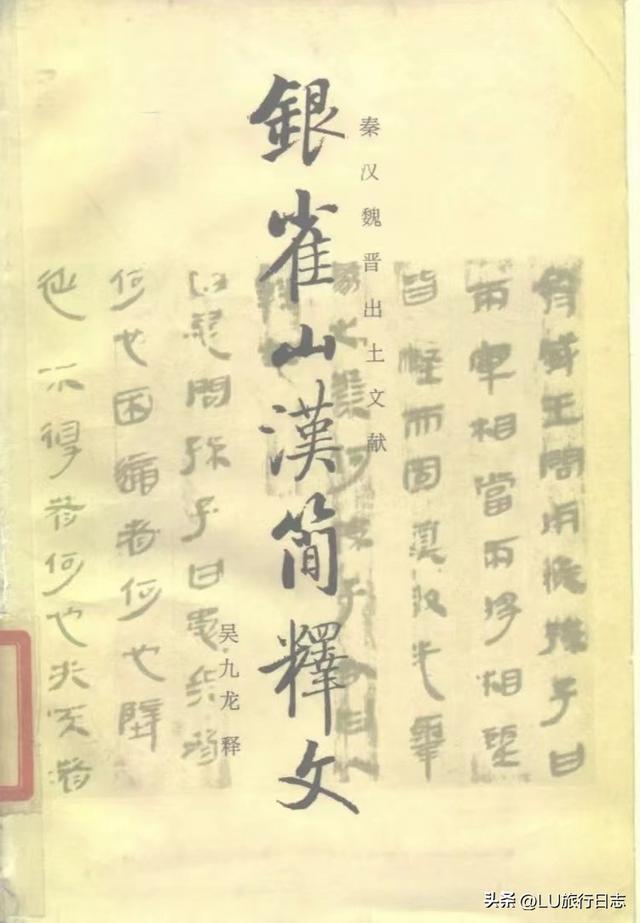 秦汉魏晋出土文献
銀雀山漢简釋文
吴九龙 释
齊威王問用兵孫子曰
兩軍相當兩將相望
皆堅而固莫敢先舉
忌問孫子曰患兵者
何也困適者何也壁
不得者何也失天者
头条 @LU旅行日志